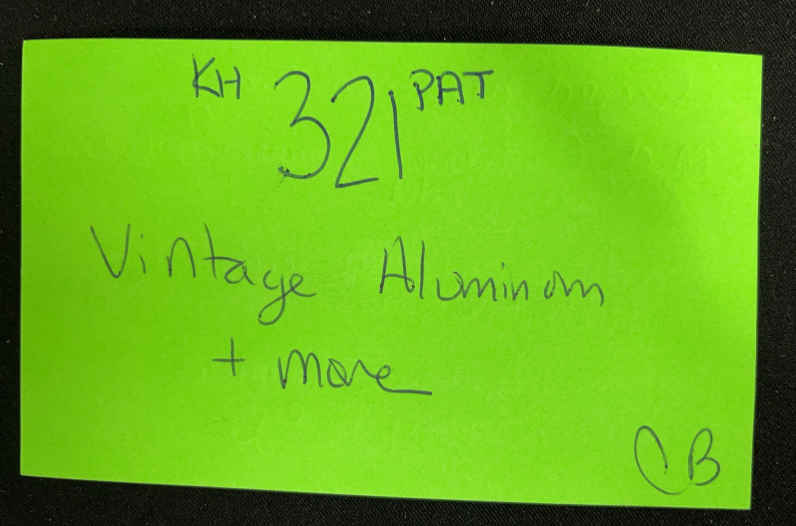 KH 321 PAT
Vintage Aluminum
+ more
CB